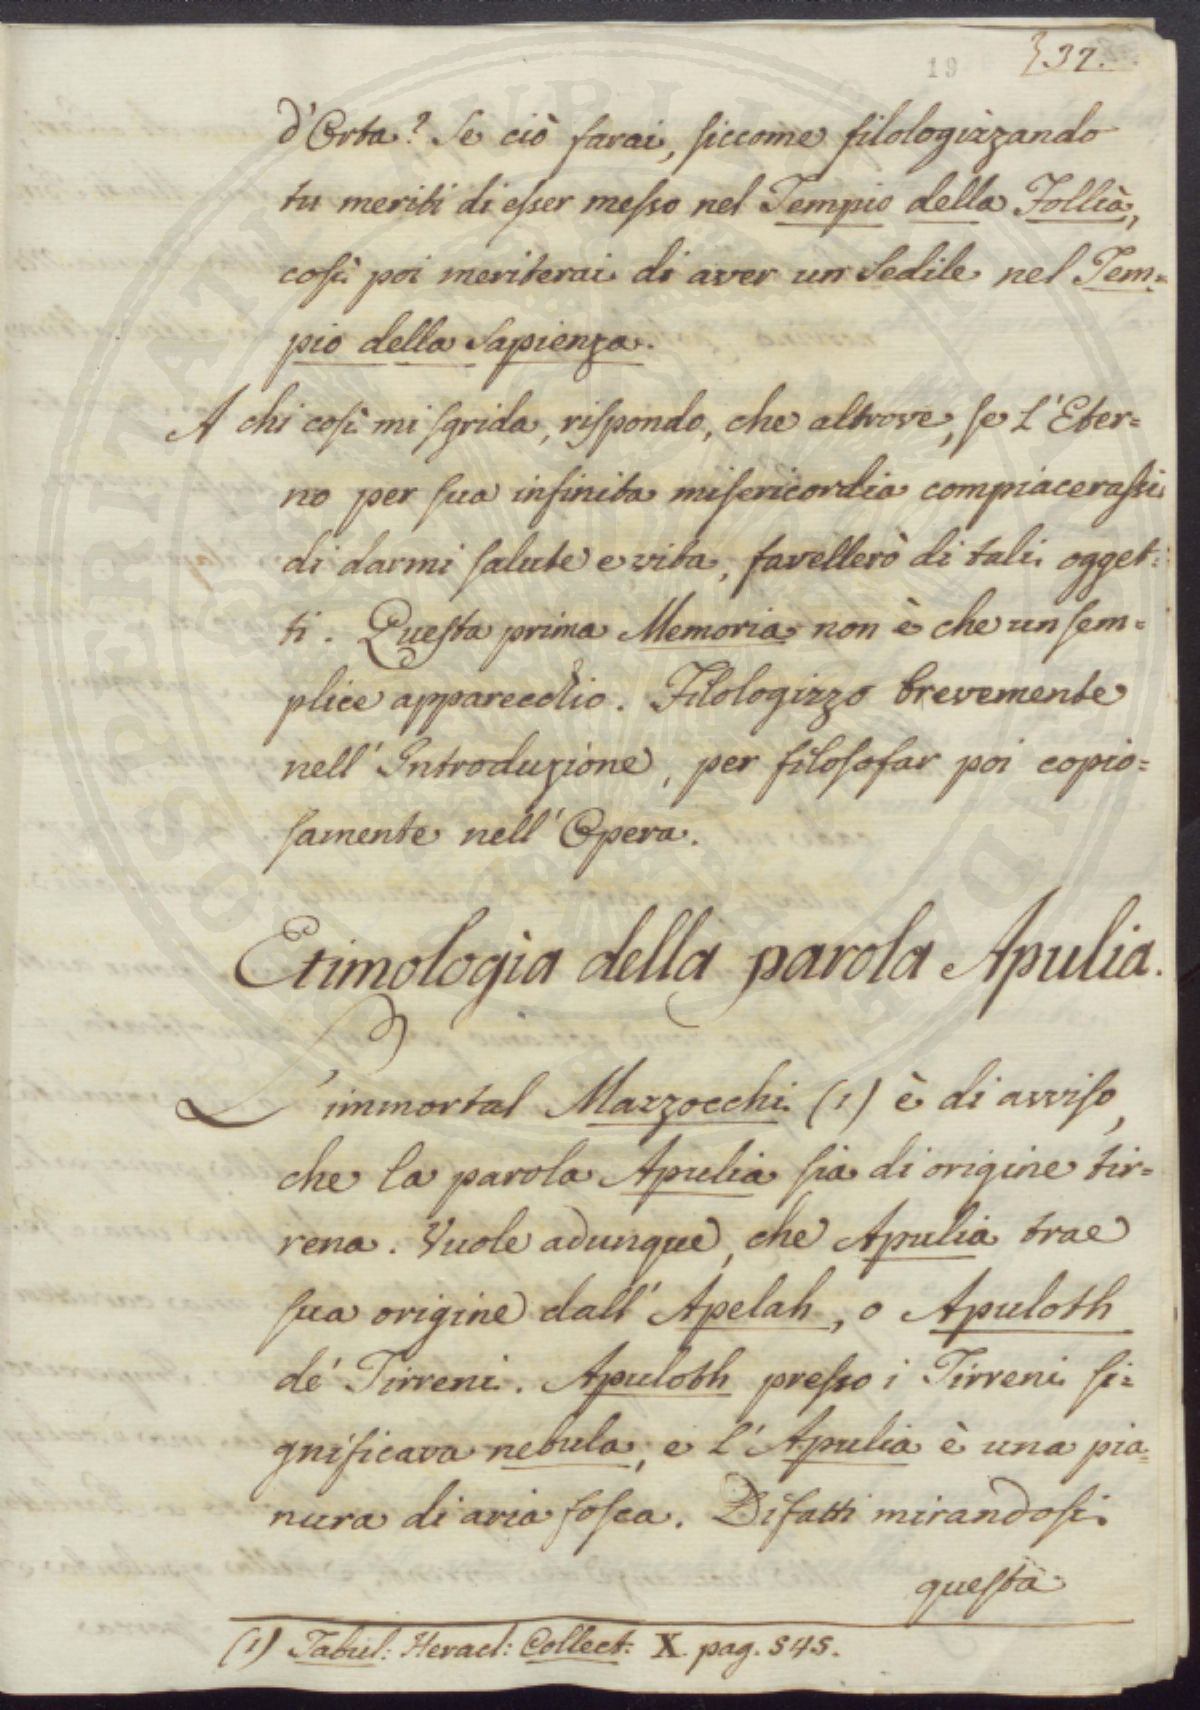 19
337.
d'Orta? Se ciò farai, siccome filologizzando
tu meriti di esser messo nel Tempio della Follìa,
così poi meriterai di aver un Sedile nel Tem=
pio della Sapienza.
A chi così mi sgrida, rispondo, che altrove, se l'Eter=
no per sua infinita misericordia compiacerassi
di darmi salute e vita, favellerò di tali ogget=
ti. Questa prima Memoria non è che un sem=
plice apparecchio. Filologizzo brevemente
nell'Introduzione, per filosofar poi copio=
samente nell'Opera.
Etimologìa della parola Apulia.
L'immortal Mazzocchi (1) è di avviso,
che la parola Apulia sia di origine tir=
rena. Vuole adunque, che Apulia trae
sua origine dall'Apelah, o Apuloth
de' Tirreni. Apuloth presso i Tirreni si=
gnificava nebula, e l'Apulia è una pia=
nura di aria fosca. Difatti mirandosi
questa
(1) Tabul: Heracl: Collect: X. pag. 545.